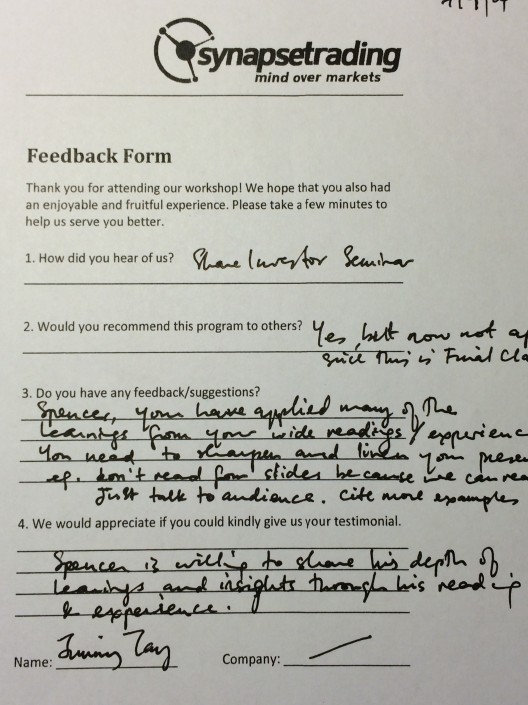 synapsetrading
mind over markets
Feedback Form
Thank you for attending our workshop! We hope that you also had
an enjoyable and fruitful experience. Please take a few minutes to
help us serve you better.
1. How did you hear of us? Share Investor Seminar
2. Would you recommend this program to others? Yes, but now not
since this is Final Cla
3. Do you have any feedback/suggestions?
Spencer, you have applied many of the
learnings from your wide readings / experienc
You need to sharpen and liven your presen
eg. don't read from slides because we can rea
Just talk to audience. cite more examples
4. We would appreciate if you could kindly give us your testimonial.
Spencer is willing to share his depth of
learnings and insights through his reading
& experience.
Name: Tay
Company: